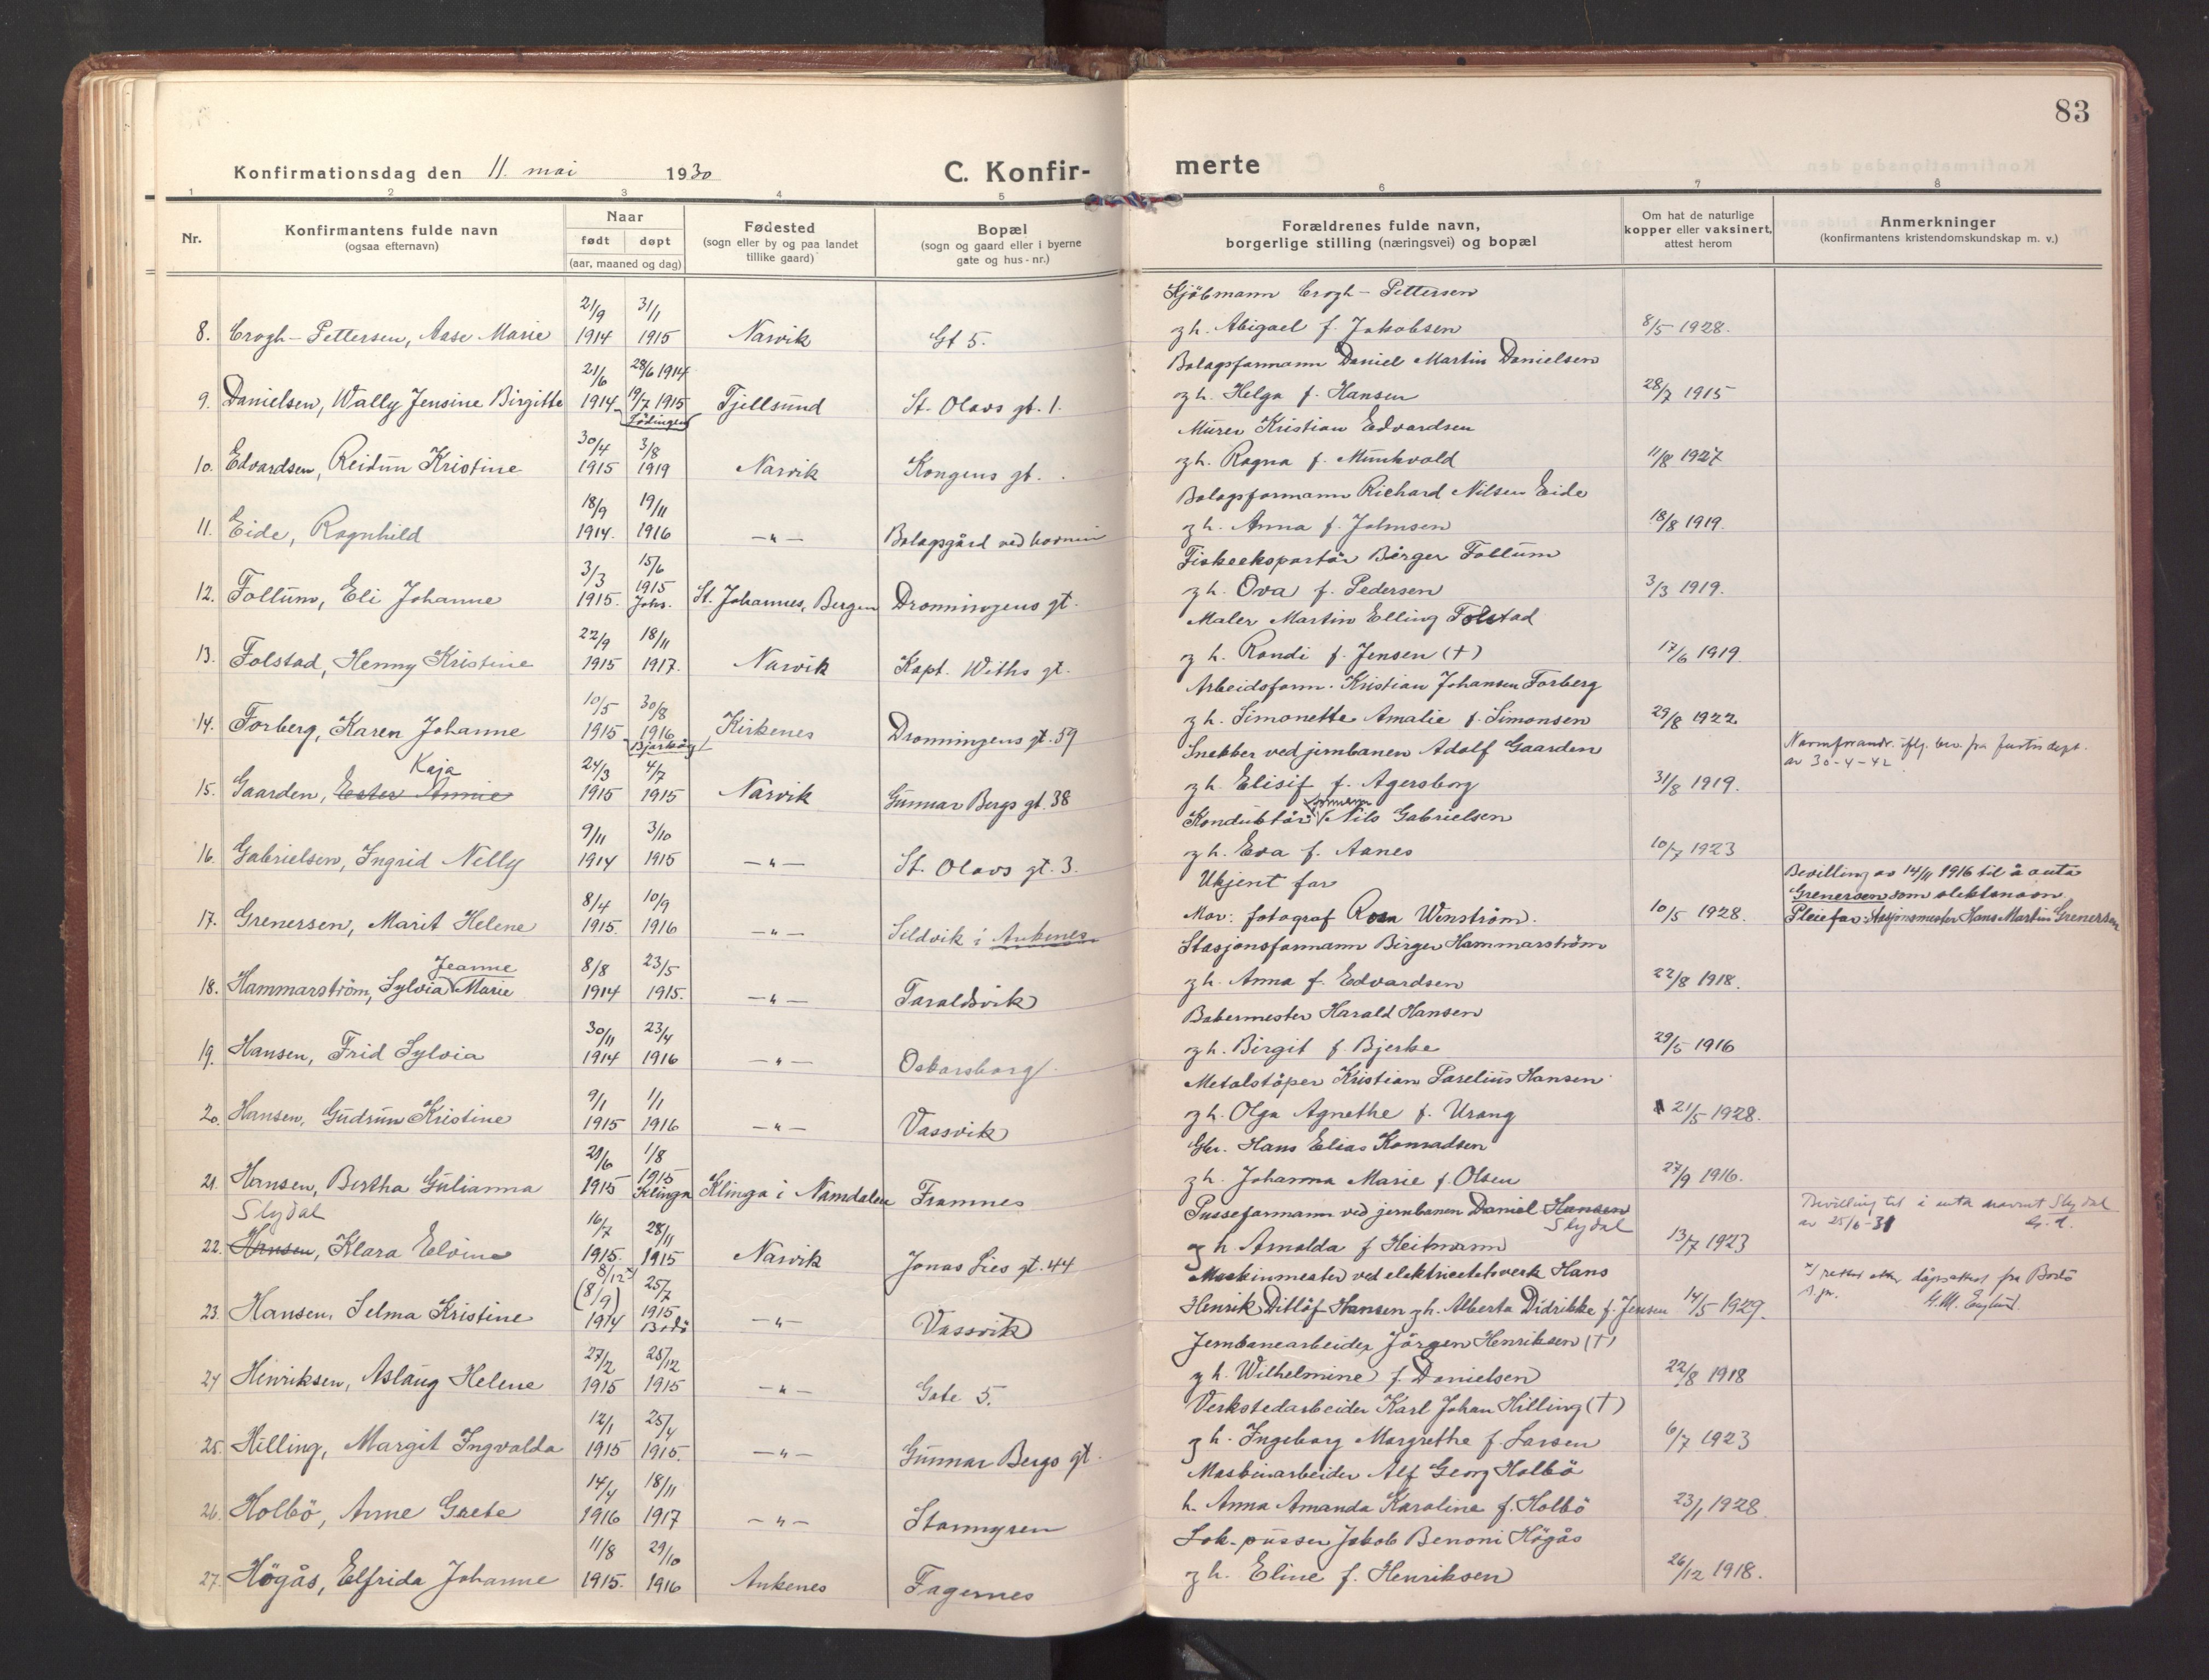 83
Konfirmationsdag den 11. mai 1930
C. Konfir-
merte
1 2 3 4 5 6 7 8
Nr.
Konfirmantens fulde navn
(ogsaa efternavn)
Naar
født døpt
(aar, maaned og dag)
Fødested
(sogn eller by og paa landet
tillike gaard)
Bopæl
(sogn og gaard eller i byerne
gate og hus-nr.)
Forældrenes fulde navn,
borgerlige stilling (næringsvei) og bopæl
Om hat de naturlige
kopper eller vaksinert,
attest herom
Anmerkninger
(konfirmantens kristendomskundskap m. v.)
2/9 31/1 Kjöbmann Crogh-Pettersen
8. Crogh-Pettersen, Aase Marie 1914 1915 Narvik Gt 5. g h. Abigael f. Jakobsen 8/5 1928.
21/6 28/6 1914 Bolagsformann Daniel Martin Danielsen
9. Danielsen, Wally Jensine Birgitte 1914 19/7 1915 Tjellsund St. Olavs gt. 1. g h. Helga f. Hansen 28/7 1915
Lödingen
30/4 3/8 Murer Kristian Edvardsen
10. Edvardsen, Reidun Kristine 1915 1919 Narvik Kongens gt. g h. Ragna f. Munkvold 11/8 1927
18/9 19/11 Bolagsformann Richard Nilsen Eide
11. Eide, Ragnhild 1914. 1916 —"— Bolagsgård ved havnen g h. Anna f. Johnsen 18/8 1919.
3/3 15/6 Fiskeeksportör Birger Follum
12. Follum, Eli Johanne 1915. 1915 Johs. St. Johannes, Bergen Dronningens gt. g h. Ova f. Pedersen 3/3 1919.
22/9 18/11 Maler Martin Elling Folstad
13. Folstad, Henny Kristine 1915 1917. Narvik Kapt. Withs gt. g h. Randi f. Jensen (†) 17/6 1919.
10/5 30/8 Arbeidsform. Kristian Johansen Forberg
14. Forberg, Karen Johanne 1915 1916 Kirkenes Dronningens gt. 59 g h. Simonette Amalie f. Simonsen 29/8 1922
Bjarköy
Kaja 24/3 4/7 Snekker ved jernbanen Adolf Gaarden Navneforandr. iflg. bev. fra Justisdept.
av 30-4-42
15. Gaarden, Ester Annie 1915 1915 Narvik Gunnar Bergs gt. 38 g h. Elisif f. Agersborg 31/8 1919.
9/11 3/10 Konduktör formann Nils Gabrielsen
16. Gabrielsen, Ingrid Nelly 1914 1915 —"— St. Olavs gt. 3. g h. Eva f. Aanes 10/7 1923
8/4 10/9 Ukjent far Bevilling av 14/11 1916 til å anta
Grenersen som slektsnavn
17. Grenersen, Marit Helene 1915. 1916 —"— Sildvik i Ankenes Mor: fotograf Rosa Winström. 10/5 1928. Pleiefar: Stasjonsmester Hans Martin Grenersen
Jeanne 8/8 23/5 Stasjonsformann Birger Hammarström
18. Hammarström, Sylvia Marie 1914 1915. —"— Taraldsvik g h. Anna f. Edvardsen 22/8 1918.
30/11 23/4 Bakermester Harald Hansen
19. Hansen, Frid Sylvia 1914 1916 —"— Oskarsborg g h. Birgit f. Bjerke 29/5 1916
9/1 1/1 Metalstöper Kristian Parelius Hansen
20. Hansen, Gudrun Kristine 1915 1916 —"— Vassvik g h. Olga Agnethe f. Urang 21/5 1928.
1/8 Gbr. Hans Elias Konradsen
21. Hansen, Bertha Gulianna 1915 1915 Klinga Klinga i Namdalen Framnes g h. Johanna Marie f. Olsen 27/9 1916.
Slydal 16/7 28/11 Pusseformann ved jernbanen Daniel Hansen Slydal Bevilling til å anta navnet Slydal
av 25/6-31
22. Hansen, Klara Elvine 1915. 1915 Narvik Jonas Lies gt. 44 og h. Arnolda f. Heitmann 13/7 1923
8/12 x) (8/9) 25/7 Maskinmester ved elektricitetsverk Hans x) rettet etter dåpsattest fra Bodö
s.pr. H.M. Englund.
23. Hansen, Selma Kristine 1914 1915 Bodö —"— Vassvik Henrik Ditlöf Hansen g h. Alberta Didrikke f. Jensen 14/5 1929.
27/2 25/12 Jernbanearbeider Jörgen Henriksen (†)
24 Hinriksen, Aslaug Helene 1915 1915 —"— Gate 5. g h. Wilhelmine f. Danielsen 22/8 1918
12/1 25/4 Verkstedarbeider Karl Johan Hilling (†)
25. Hilling, Margit Ingvalda 1915 1915. —"— Gunnar Bergs gt. g h. Ingeborg Margrethe f. Larsen 6/7 1923
14/4 18/11 Maskinarbeider Alf Georg Holbö
26. Holbö, Anne Grete 1916 1917 —"— Stanngren h. Anna Amanda Karoline f. Holbö 23/1 1928
11/8 29/10 Lok.-pusser Jakob Benoni Högås
27. Högås, Elfrida Johanne 1915. 1916 Ankenes Fagernes g h. Eline f. Henriksen 26/12 1918.